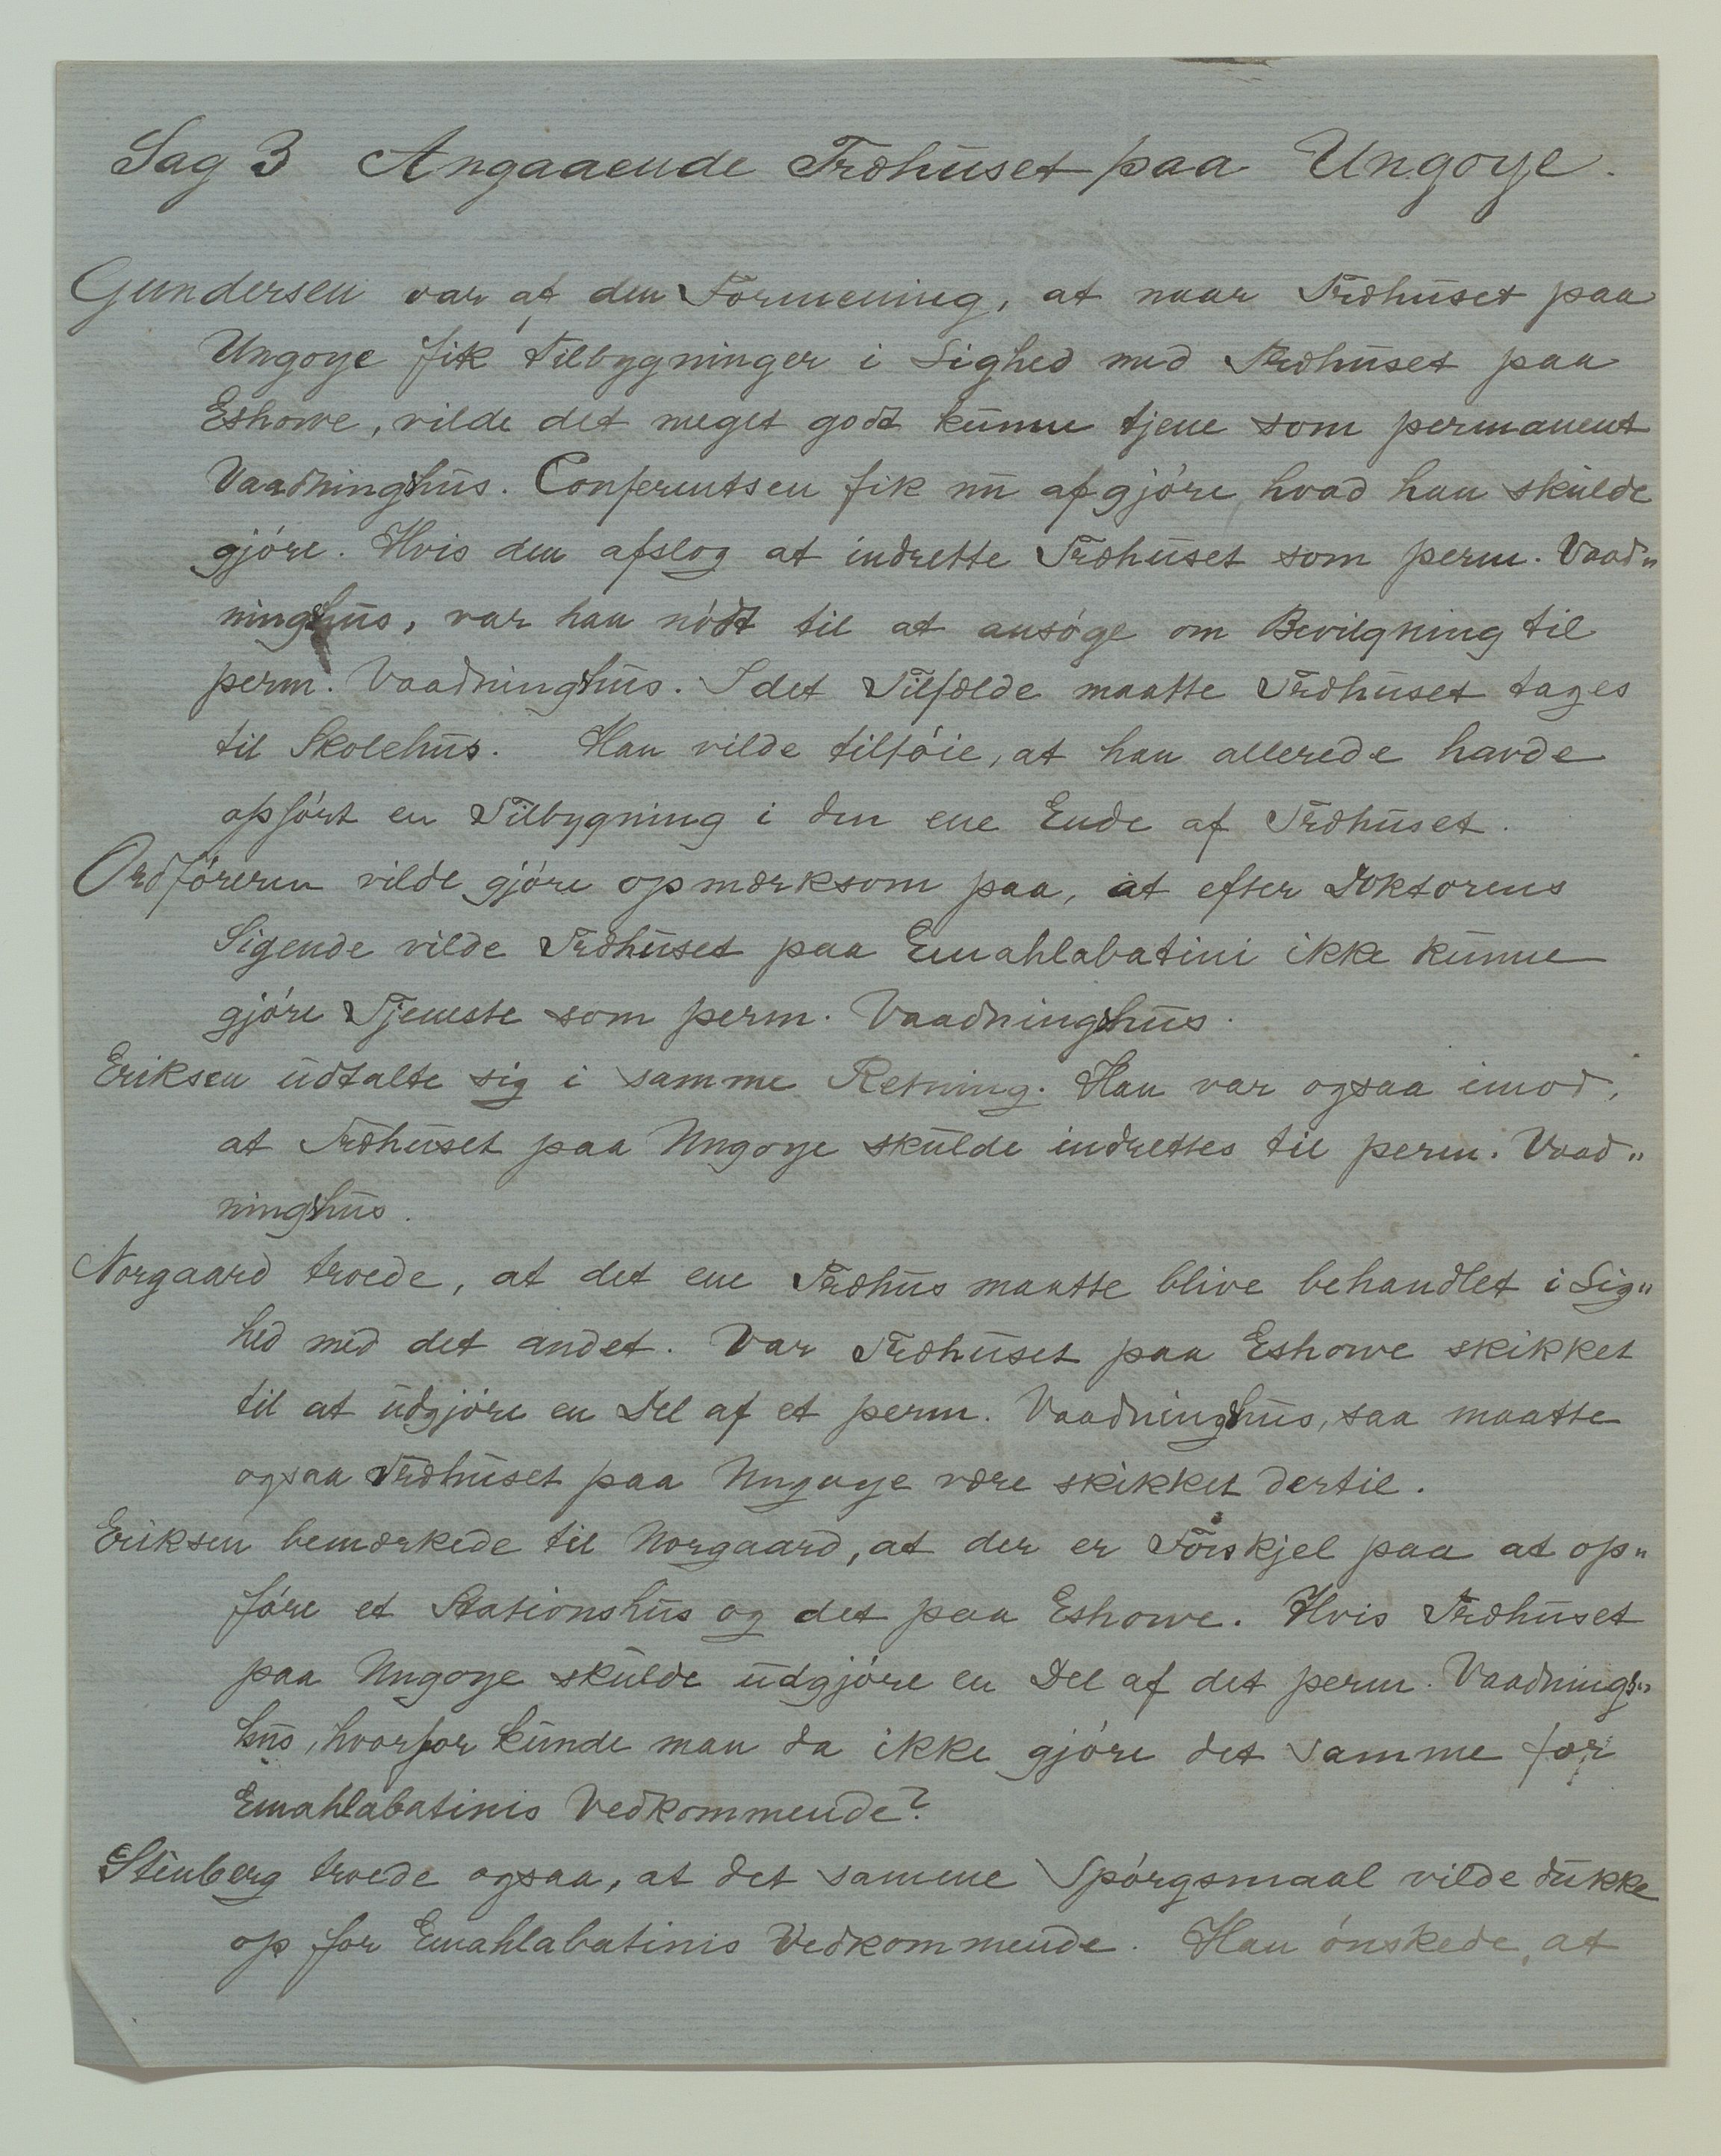 Sag 3 Angaaende Træhuset paa Ungoye.
Gundersen var af den Formening, at naar Træhuset paa
Ungoye fik Tilbygninger i Lighed med Træhuset paa
Eshowe, vilde det meget godt kunne tjene som permanent
Vaadningshus. Conferentsen fik nu afgjøre, hvad han skulde
gjøre. Hvis den afslog at indrette Træhuset som perm. Vaad„
ningshus, var han nødt til at ansøge om Bevilgning til
perm. Vaadningshus. I det Tilfælde maatte Træhuset tages
til Skolehus. Han vilde tilføie, at han allerede havde
opført en Tilbygning i den ene Ende af Træhuset.
Ordføreren vilde gjøre opmærksom paa, at efter Doktorens
Sigende vilde Træhuset paa Emahlabatini ikke kunne
gjøre Tjeneste som perm. Vaadningshus.
Eriksen udtalte sig i samme Retning. Han var ogsaa imod,
at Træhuset paa Ungoye skulde indrettes til perm. Vaad„
ningshus.
Norgaard troede, at det ene Træhus maatte blive behandlet i Lig„
hed med det andet. Var Træhuset paa Eshowe skikket
til at udgjøre en Del af et perm. Vaadningshus, saa maatte
ogsaa Træhuset paa Ungoye være skikket dertil.
Eriksen bemærkede til Norgaard, at der er Forskjel paa at op„
føre et Stationshus og det paa Eshowe. Hvis Træhuset
paa Ungoye skulde udgjøre en Del af det perm. Vaadnings„
hus, hvorfor kunde man da ikke gjøre det samme for
Emahlabatinis Vedkommende?
Stenberg troede ogsaa, at det samme Spørgsmaal vilde dukke
op for Emahlabatinis Vedkommende. Han ønskede, at